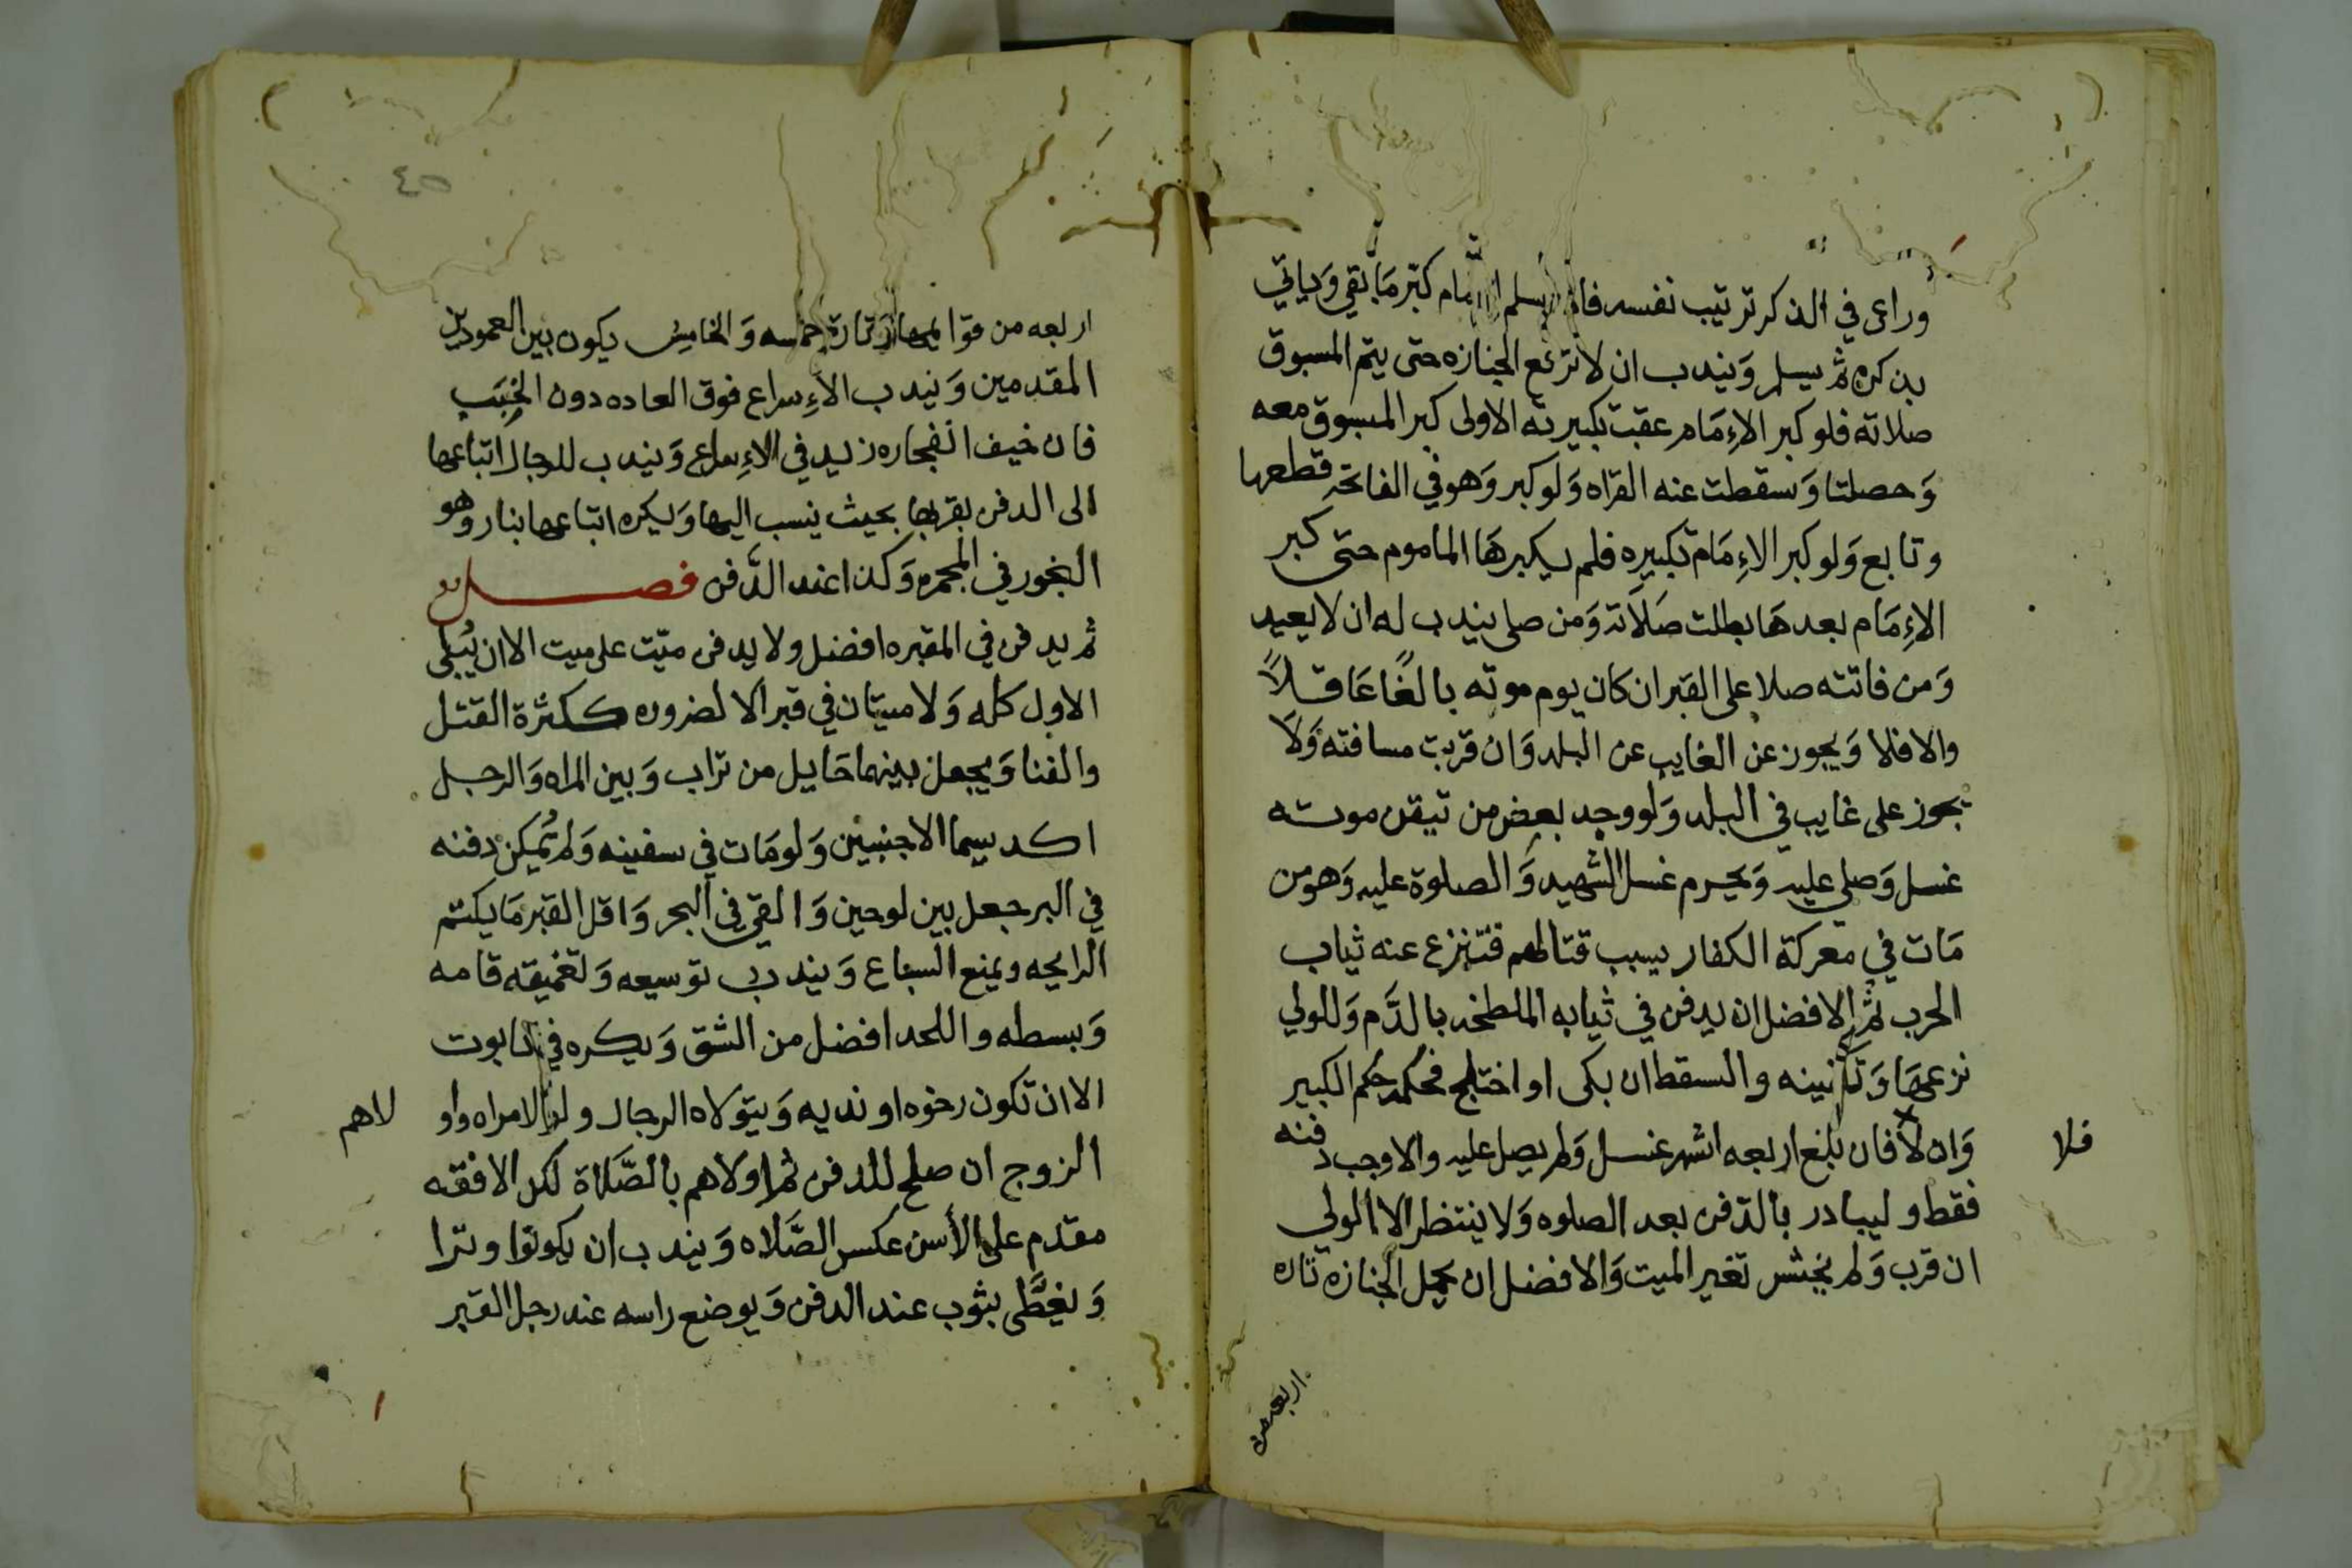 وراعى في الذكر ترتيب نفسه فاذا سلم الامام كبّر مَا بقي وَياتي
بذكره ثم يسلم وَيندب ان لا ترفع الجنازه حتى يتم المسبوق
صلاته فلو كبر الإمَام عقب تكبيرته الاولى كبر المسبوق معه
وَحصلتا وَسقطت عنه القراه وَلو كبر وَهو في الفاتحه قطعها
وتابع وَلو كبر الإمَام تكبيره فلم يكبرهَا الماموم حتى كبر
الإمَام بعدهَا بطلت صَلاَته وَمن صلى يندب له ان لا يعيد
وَمن فاتته صلا على القبر ان كان يوم موته بالغًا عَاقلاً
والا فلا وَيجوز عن الغايب عن البلد وَان قربت مسافته وَلَا
يجوز على غايب في البلد وَلو وجد بعض من تيقن موته
غسل وَصلي عليه وَيحرم غسل الشهيد وَالصلوة عليه وَهو من
مَات في معركة الكفار بسبب قتالهم فتنزع عنه ثياب
الحرب ثم الافضل ان يدفن في ثيابه الملطخه بالدَّم وَللولي
نزعهَا وَتكفينه والسقط ان بكى او اختلج فحكمه حكم الكبير
وَان لا فان بلغ اربعه اشهر غسل وَلم يصل عليه والا وجب دفنه
فلا
فقط وليبادر بالدّفن بعد الصلوه وَلا ينتظر الا الولي
ان قرب وَلم يخش تغير الميت وَالافضل ان يحمل الجنازه تاره
اربعه من
٤٥
اربعه من قوايمها وَتارة خمسه وَالخامس يكون بين العمودين
المقدمين وَيندب الإسراع فوق العاده دون الخَبَبِ
فان خيف انفجاره زيد في الإسراع وَيندب للرجال اتباعها
الى الدفن بقربها بحيث ينسب اليها وَيكره اتباعها بنار وَهو
البخور في المجمره وَكذا عند الدَّفن فصل
ثم يدفن في المقبره افضل ولا يدفن ميّت على ميت الا ان يُبلى
الاول كله وَلا ميتان في قبر الا لضروره ككثرة القتل
والفنا وَيجعل بينهما حَايل من تراب وَبين المراه وَالرجل
اكد سيما الاجنبيين وَلو مَات في سفينه وَلم يُمكن دفنه
في البر جعل بين لوحين وَالقي في البحر وَاقل القبر مَا يكتم
الرايحه ويمنع السباع وَيندب توسيعه وَتعميقه قامه
وَبسطه واللحد افضل من الشق وَيكره في تابوت
الا ان تكون رخوه او نديه وَيتولاه الرجال ولو لامراه واو
لاهم
الزوج ان صلح للدفن ثم اولاهم بالصَّلاة لكن الافقه
مقدم على الأسن عكس الصَّلاه وَيندب ان يكونوا وترا
وَيغطَّى بثوب عند الدفن وَيوضع راسه عند رجل القبر